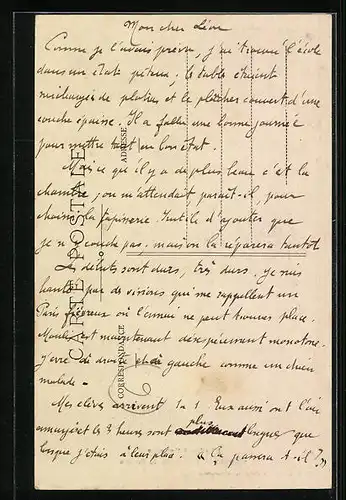 Mon cher Léon
Comme je l'avais prévu, j'ai trouvé l'école
dans un état piteux, les tables étaient
surchargées de plâtras et le plancher couvert d'une
couche épaisse. Il a fallu une bonne journée
pour mettre tout en bon état.
Mais ce qu'il y a de plus beau c'est la
chambre, on m'attendait parait-il, pour
choisir la tapisserie. Inutile d'ajouter que
je n'y couche pas, la réparera tantôt
Les débuts sont durs, très durs, je suis
hanté par de visions qui me rappellent un
Paris fiévreux où l'ennui ne peut trouver place.
est maintenant désespérément monotone.
J'erre de droite et de gauche comme un chien
malade.
Mes élèves arrivent 1 à 1 Eux aussi ont l'air
et les 3 heures sont plus longues que
lorsque j'étais à leur place. Ça passera t-il ?
CARTE POSTALE
CORRESPONDANCE
ADRESSE